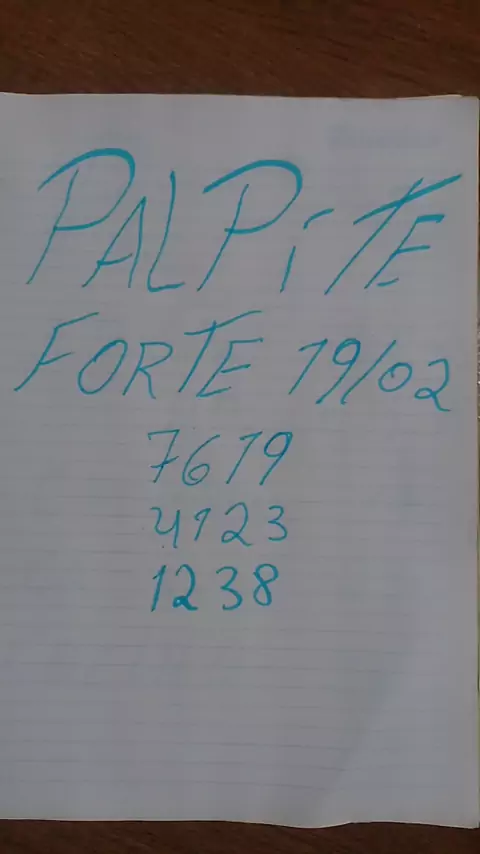 PALPITE
FORTE 19/02
7619
4123
1238